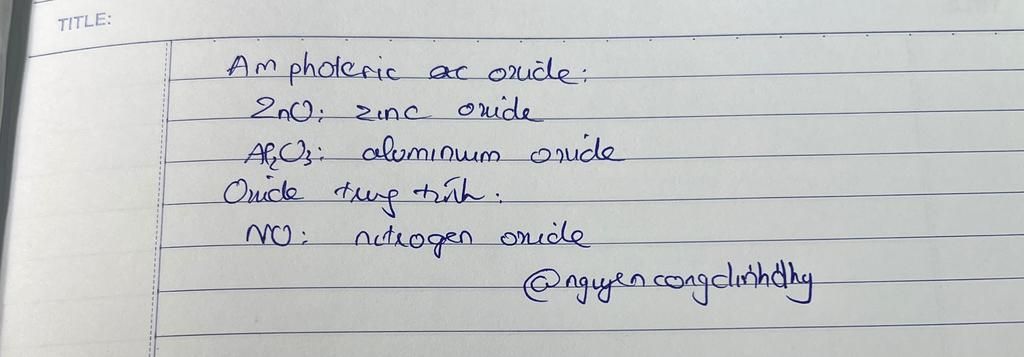 TITLE:
Amphoteric oxide:
ZnO: zinc oxide
Al₂O₃: aluminum oxide
Oxide trung tính:
NO: nitrogen oxide